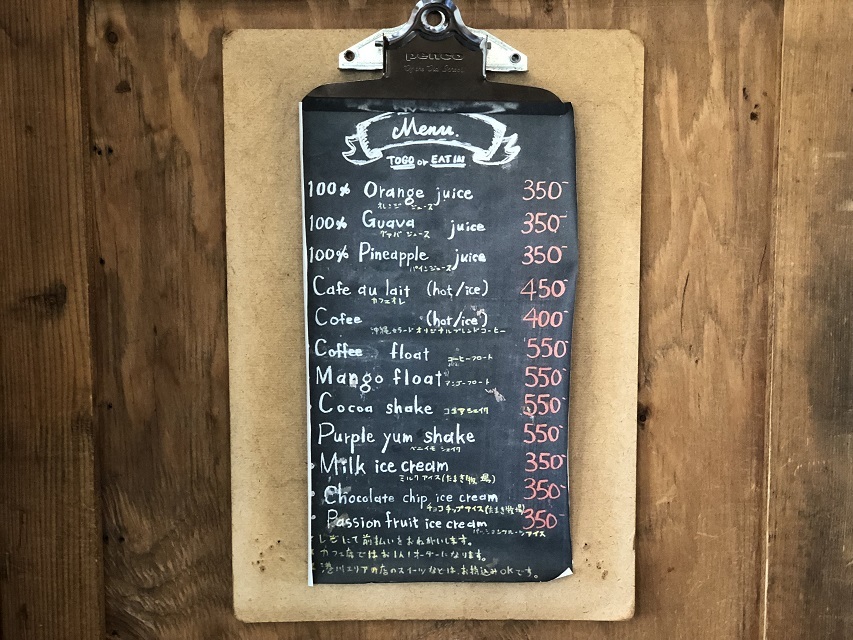 penco
Menu.
TOGO or EAT IN!
100% Orange juice 350-
オレンジ ジュース
100% Guava juice 350-
グァバ ジュース
100% Pineapple juice 350-
パインジュース
Cafe au lait (hot/ice) 450-
カフェオレ
Cofee (hot/ice) 400-
沖縄セラードオリジナルブレンドコーヒー
Coffee float 550-
コーヒーフロート
Mango float 550-
マンゴーフロート
Cocoa shake ココアシェイク 550-
Purple yum shake 550-
ベニイモ シェイク
Milk ice cream 350-
ミルクアイス(たまき牧場)
Chocolate chip ice cream 350-
チョコチップアイス(たまき牧場)
Passion fruit ice cream 350-
パッションフルーツアイス
・レジにて前払いをお願いします。
・カフェ店ではお1人1オーダーになります。
・港川エリアの店のスイーツなどは、お持込みOKです。